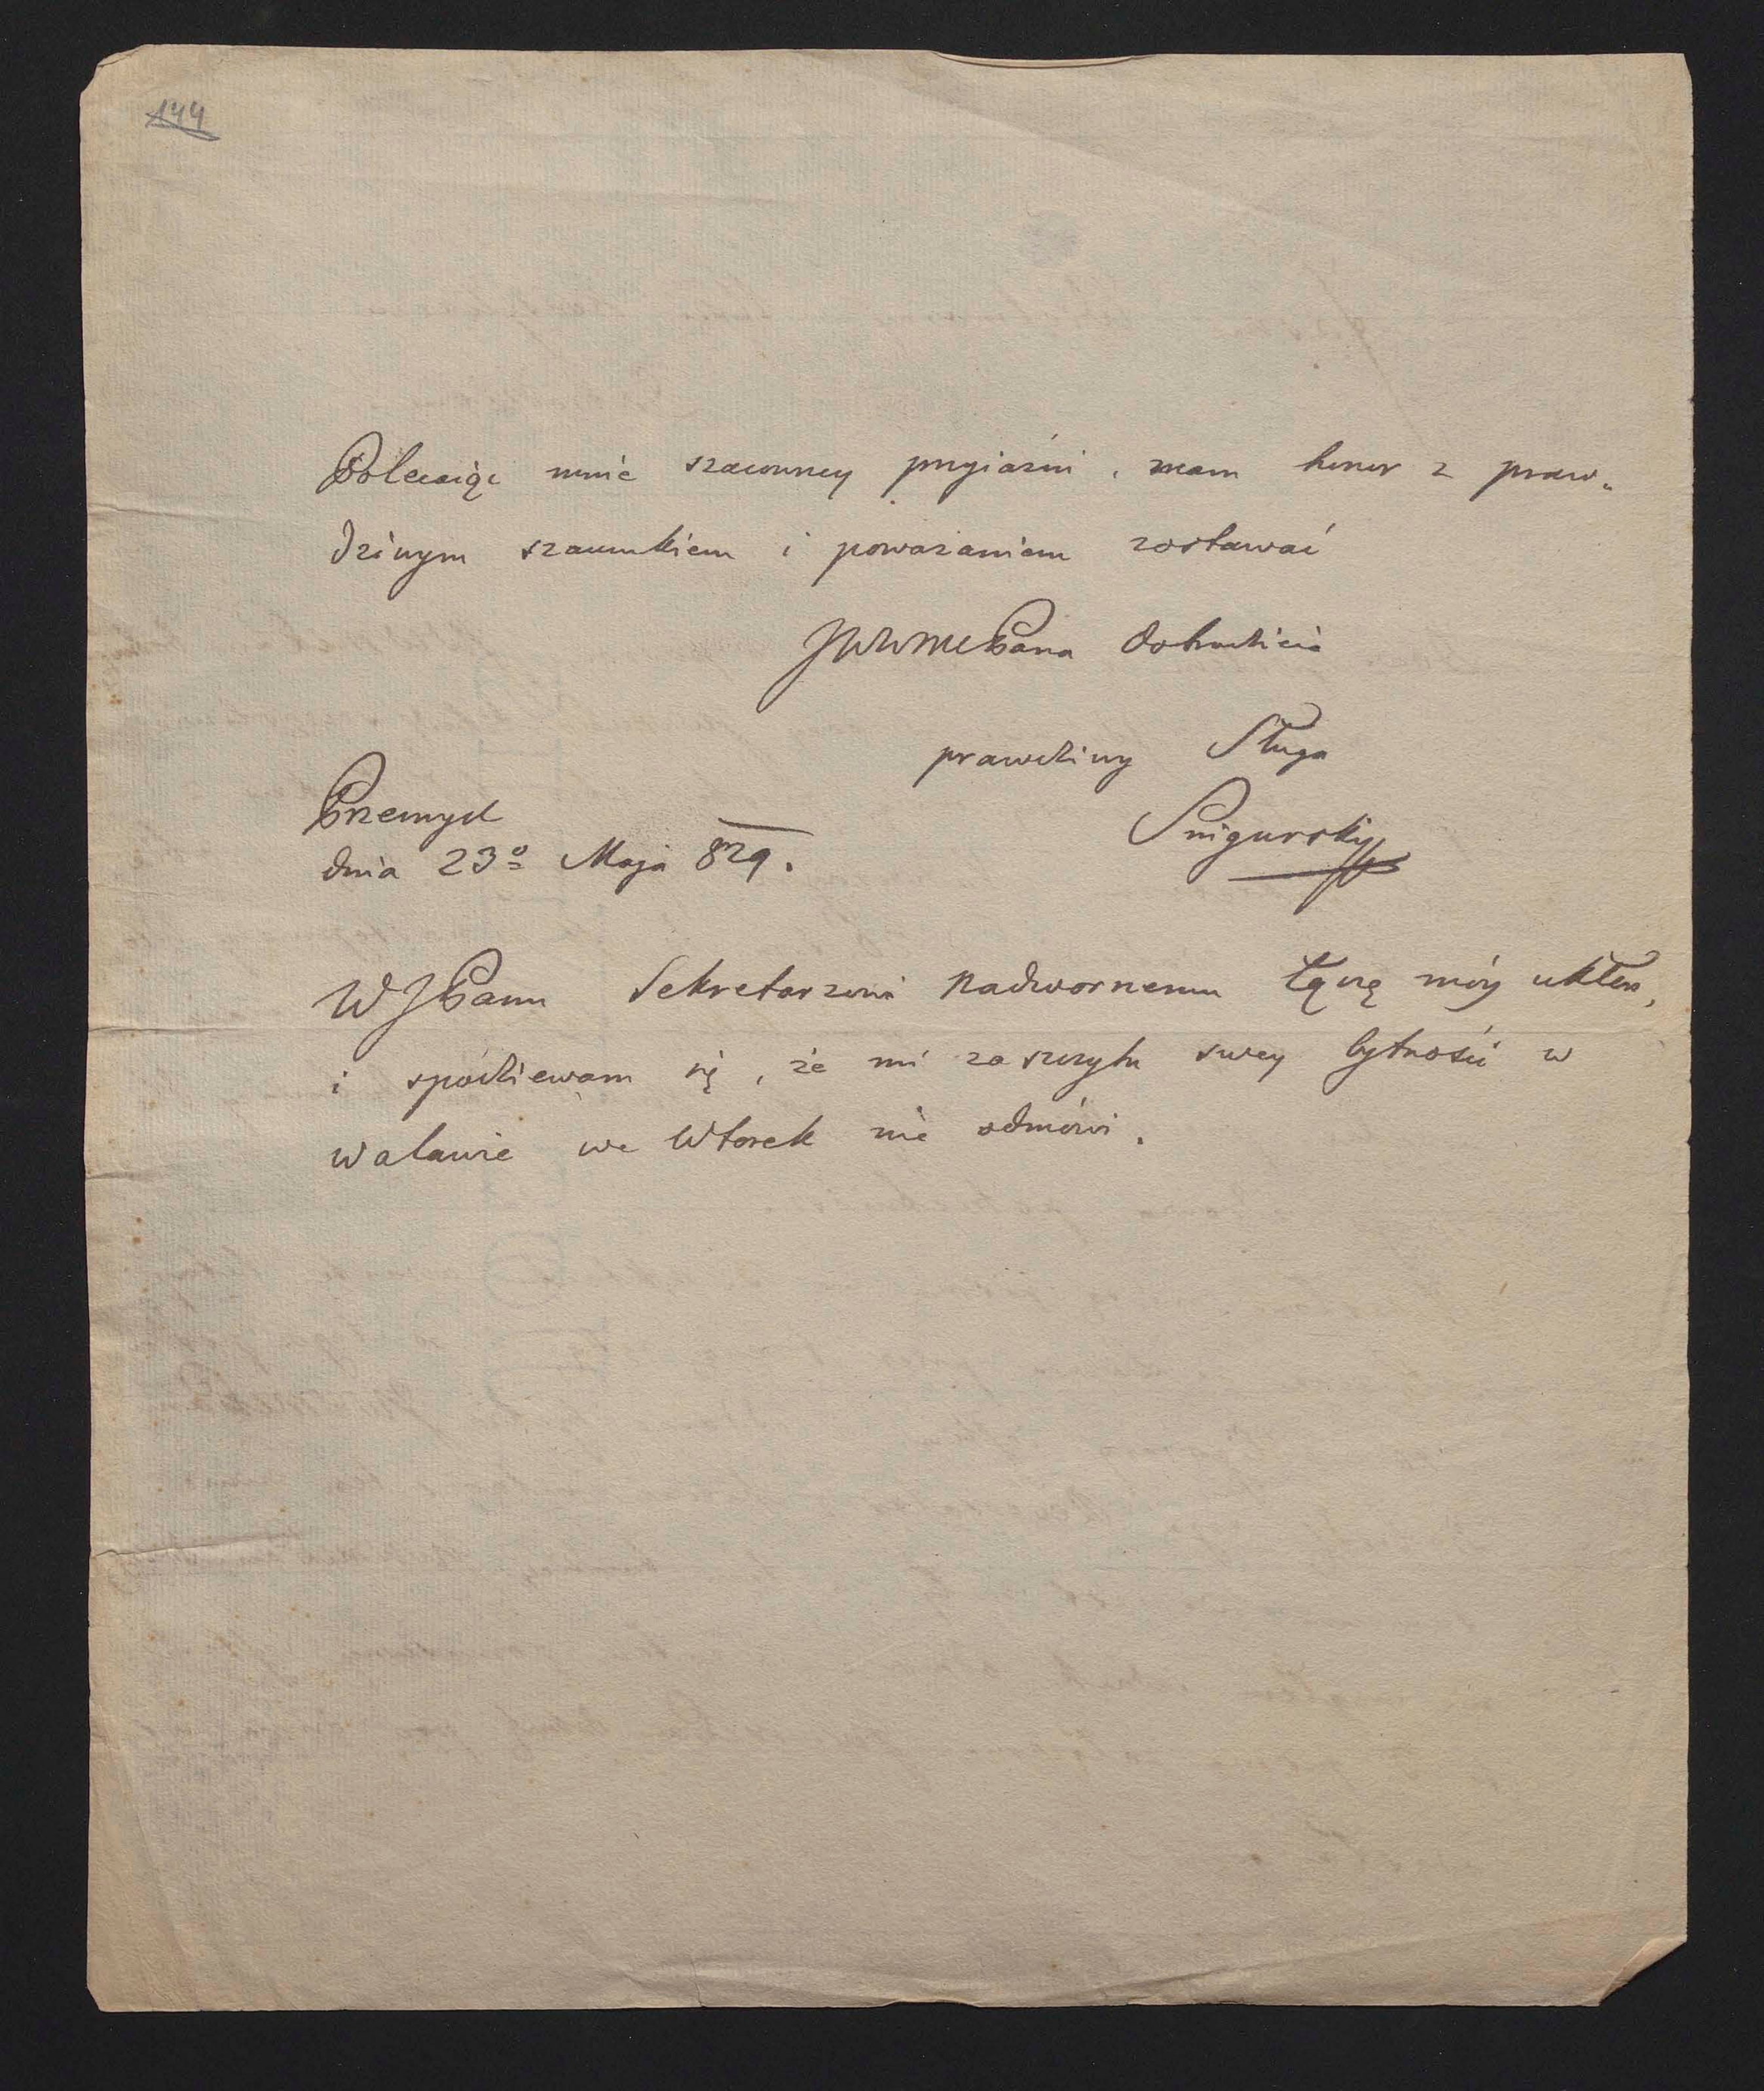 144
Polecaiąc mnie szacowney przyiaźni, mam honor z praw-
dziwym szacunkiem i poważaniem zostawać
JWWMCPana dobrodzieia
prawdziwy Sługa
Snigurskiy
Przemysl
dnia 23º Maja 829.
WJPanu Sekretarzowi nadwornemu łączę móy ukłon,
i spodziewam się, że mi zaszczytu swey bytności w
Walawie we Wtorek nie odmówi.